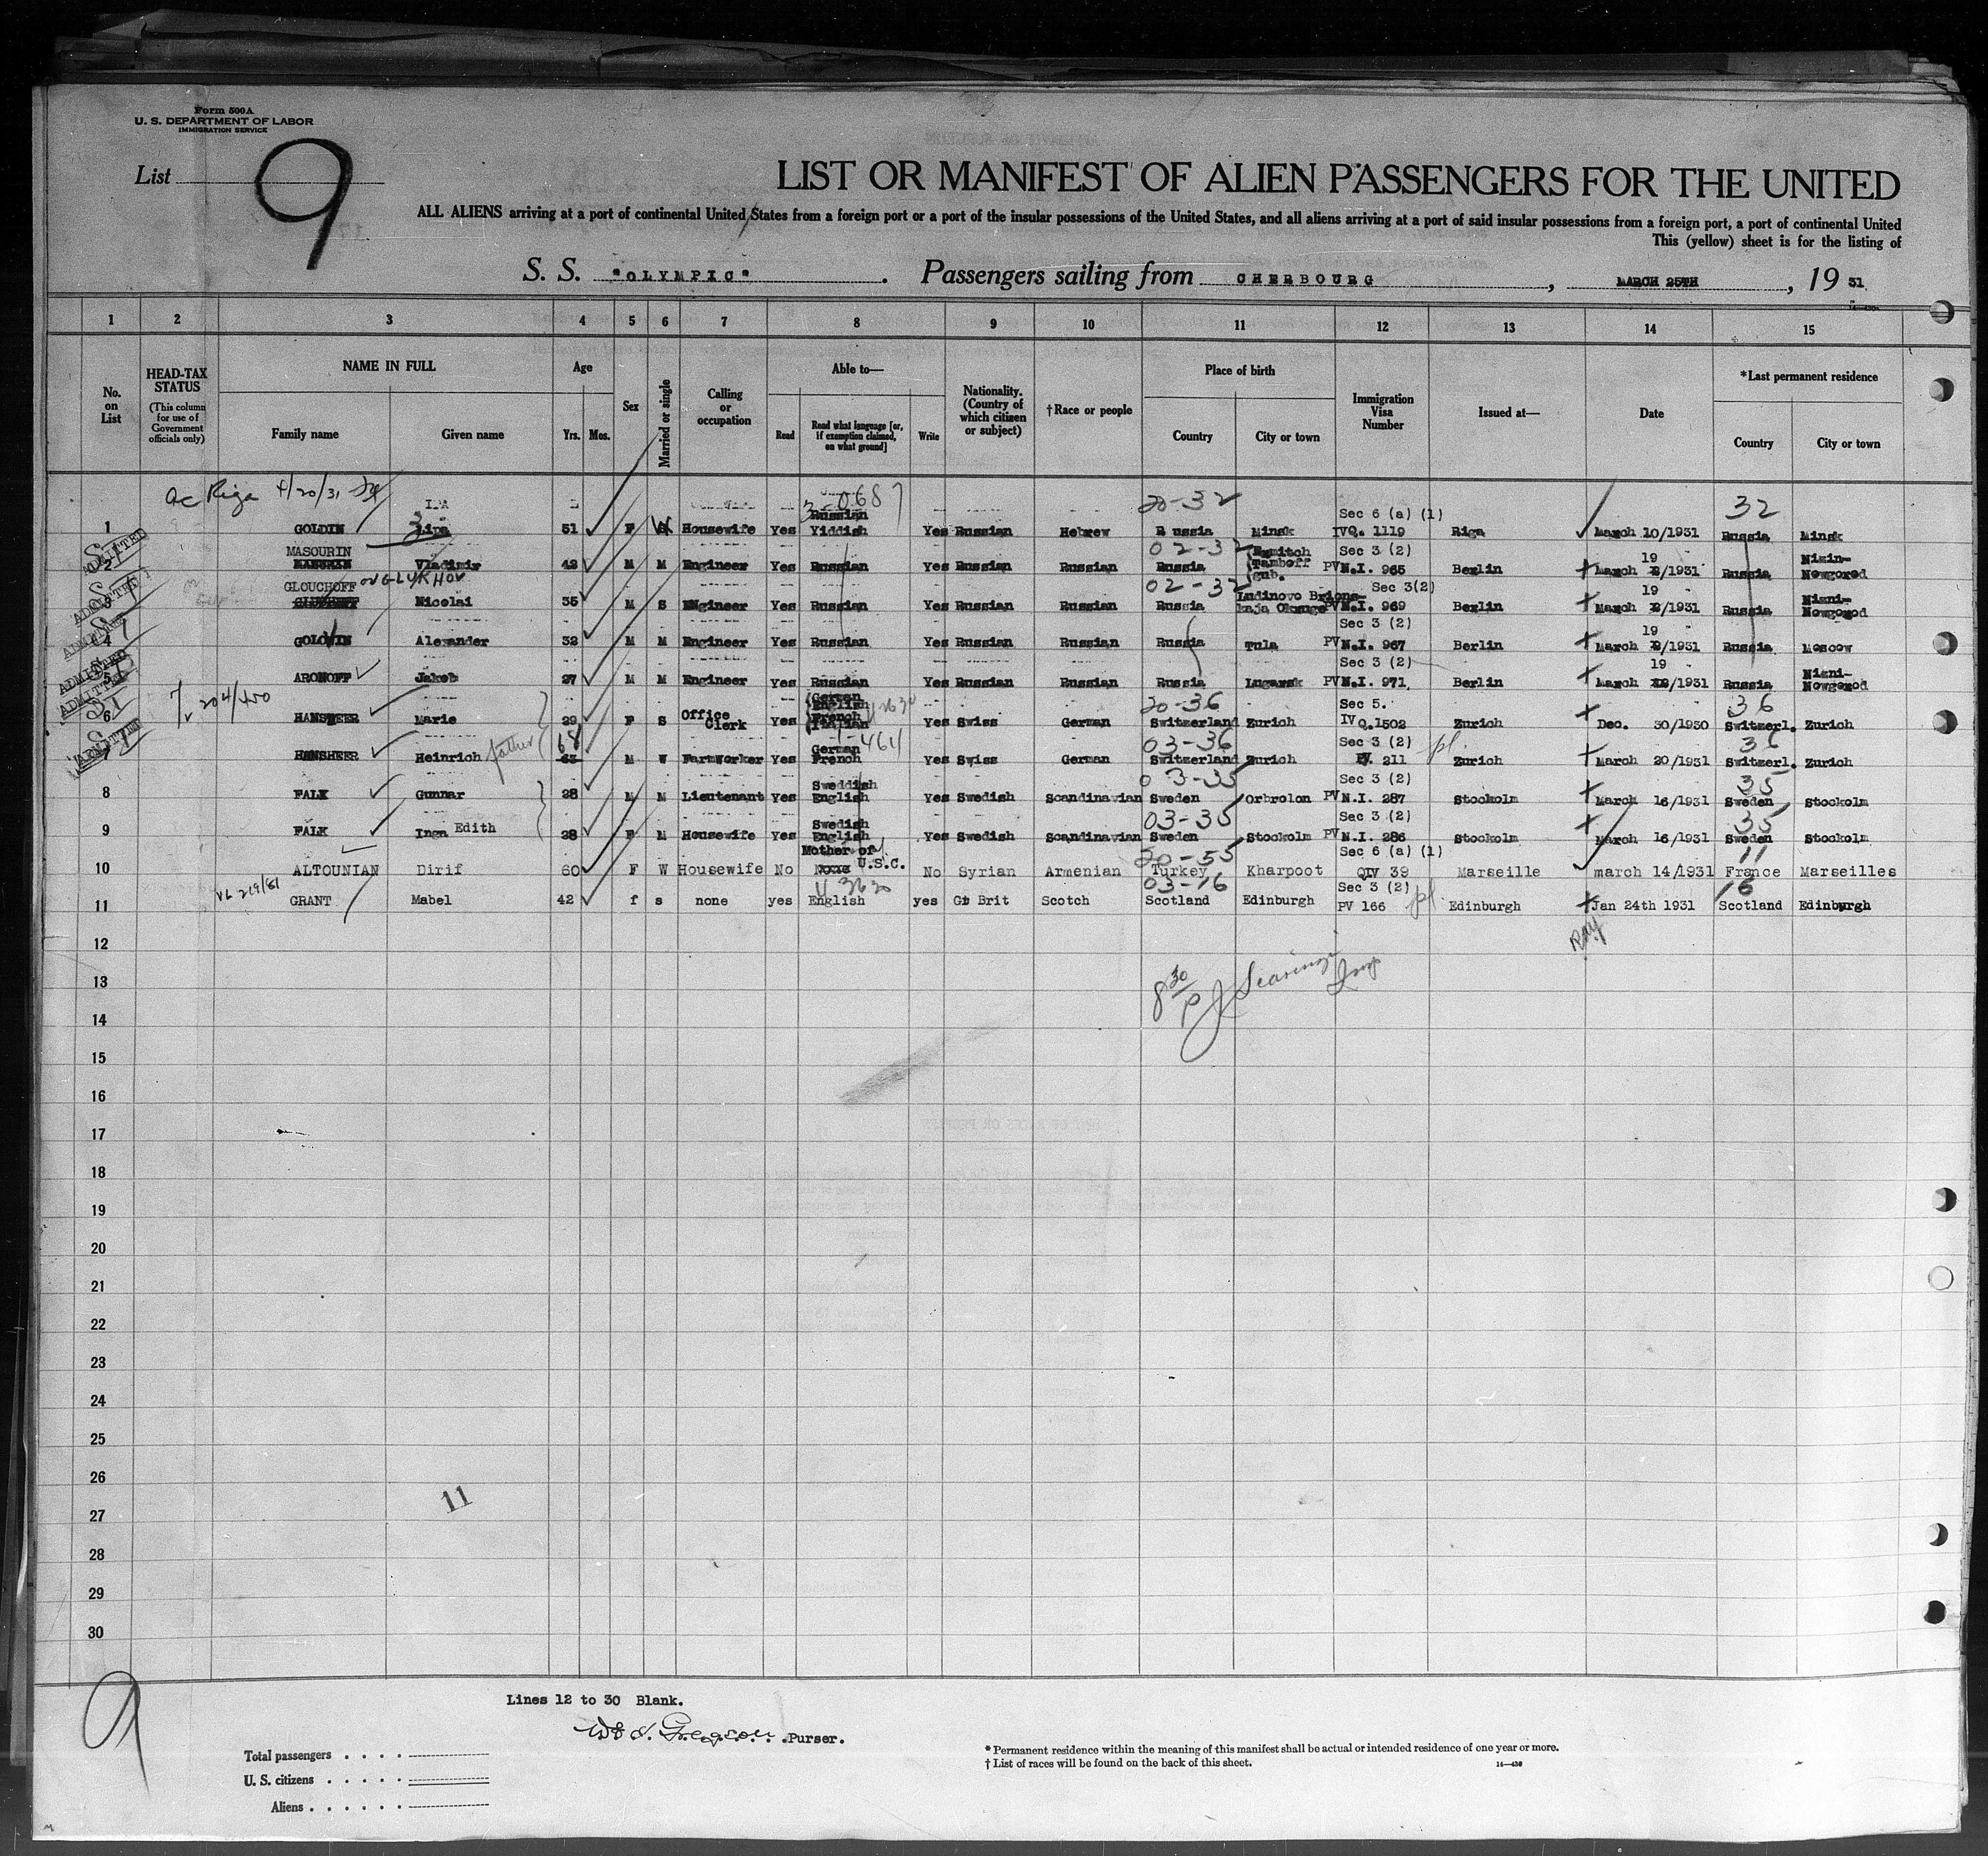 Form 500A
U. S. DEPARTMENT OF LABOR
IMMIGRATION SERVICE
List 9
LIST OR MANIFEST OF ALIEN PASSENGERS FOR THE UNITED
ALL ALIENS arriving at a port of continental United States from a foreign port or a port of the insular possessions of the United States, and all aliens arriving at a port of said insular possessions from a foreign port, a port of continental United
This (yellow) sheet is for the listing of
S. S. "OLYMPIC". Passengers sailing from CHERBOURG, MARCH 25TH, 19 31
1 2 3 4 5 6 7 8 9 10 11 12 13 14 15
No. on List
HEAD-TAX STATUS
(This column for use of Government officials only)
NAME IN FULL
Family name Given name
Age
Yrs. Mos.
Sex
Married or single
Calling or occupation
Able to—
Read
Read what language [or, if exemption claimed, on what ground]
Write
Nationality. (Country of which citizen or subject)
†Race or people
Place of birth
Country City or town
Immigration Visa Number
Issued at—
Date
*Last permanent residence
Country City or town
Riga 4/20/31 20-32 Sec 6 (a) (1) 32
1 GOLDIN 51 F Housewife Yes Russian Yiddish Yes Russian Hebrew Russia Minsk IVQ. 1119 Riga March 10/1931 Russia Minsk
MASOURIN 02-32 Sec 3 (2) 19
2 Vladimir 42 M M Engineer Yes Russian Yes Russian Russian Russia Tamboff gub. PV N.I. 965 Berlin March /1931 Russia Nizni-Nowgorod
GLOUCHOFF or GLUKHOV 02-32 Sec 3(2) 19
3 Nicolai 35 M S Engineer Yes Russian Yes Russian Russian Russia Ludinovo PV N.I. 969 Berlin March /1931 Russia Nizni-Nowgorod
Sec 3 (2) 19
4 Alexander 32 M M Engineer Yes Russian Yes Russian Russian Russia Tula PV N.I. 967 Berlin March /1931 Russia Moscow
Sec 3 (2) 19
5 ARONOFF Jakob 27 M M Engineer Yes Russian Yes Russian Russian Russia Lugansk PV N.I. 971 Berlin March /1931 Russia Nizni-Nowgorod
204/450 20-36 Sec 5. 36
6 Marie 29 F S Office Clerk Yes German English French Italian Yes Swiss German Switzerland Zurich IV Q.1502 Zurich Dec. 30/1930 Switzerl. Zurich
03-36 Sec 3 (2) 36
7 Heinrich father 68 M W Farmworker Yes German French Yes Swiss German Switzerland Zurich PV. 211 Zurich March 20/1931 Switzerl. Zurich
03-35 Sec 3 (2) 35
8 FALK Gunnar 28 M M Lieutenant Yes Sweddish English Yes Swedish Scandinavian Sweden Orbrolon PV N.I. 287 Stockolm March 16/1931 Sweden Stockolm
03-35 Sec 3 (2) 35
9 FALK Inga Edith 28 F M Housewife Yes Swedish English Yes Swedish Scandinavian Sweden Stockolm PV N.I. 286 Stockolm March 16/1931 Sweden Stockolm
20-55 Sec 6 (a) (1) 11
10 ALTOUNIAN Dirif 60 F W Housewife No Mother of U.S.C. No Syrian Armenian Turkey Kharpoot QIV 39 Marseille march 14/1931 France Marseilles
03-16 Sec 3 (2) 16
11 GRANT Mabel 42 f s none yes English yes Gt Brit Scotch Scotland Edinburgh PV 166 Edinburgh Jan 24th 1931 Scotland Edinburgh
12
13
14
15
16
17
18
19
20
21
22
23
24
25
26
11
27
28
29
30
9
Lines 12 to 30 Blank.
Purser.
Total passengers
U. S. citizens
Aliens
* Permanent residence within the meaning of this manifest shall be actual or intended residence of one year or more.
† List of races will be found on the back of this sheet.